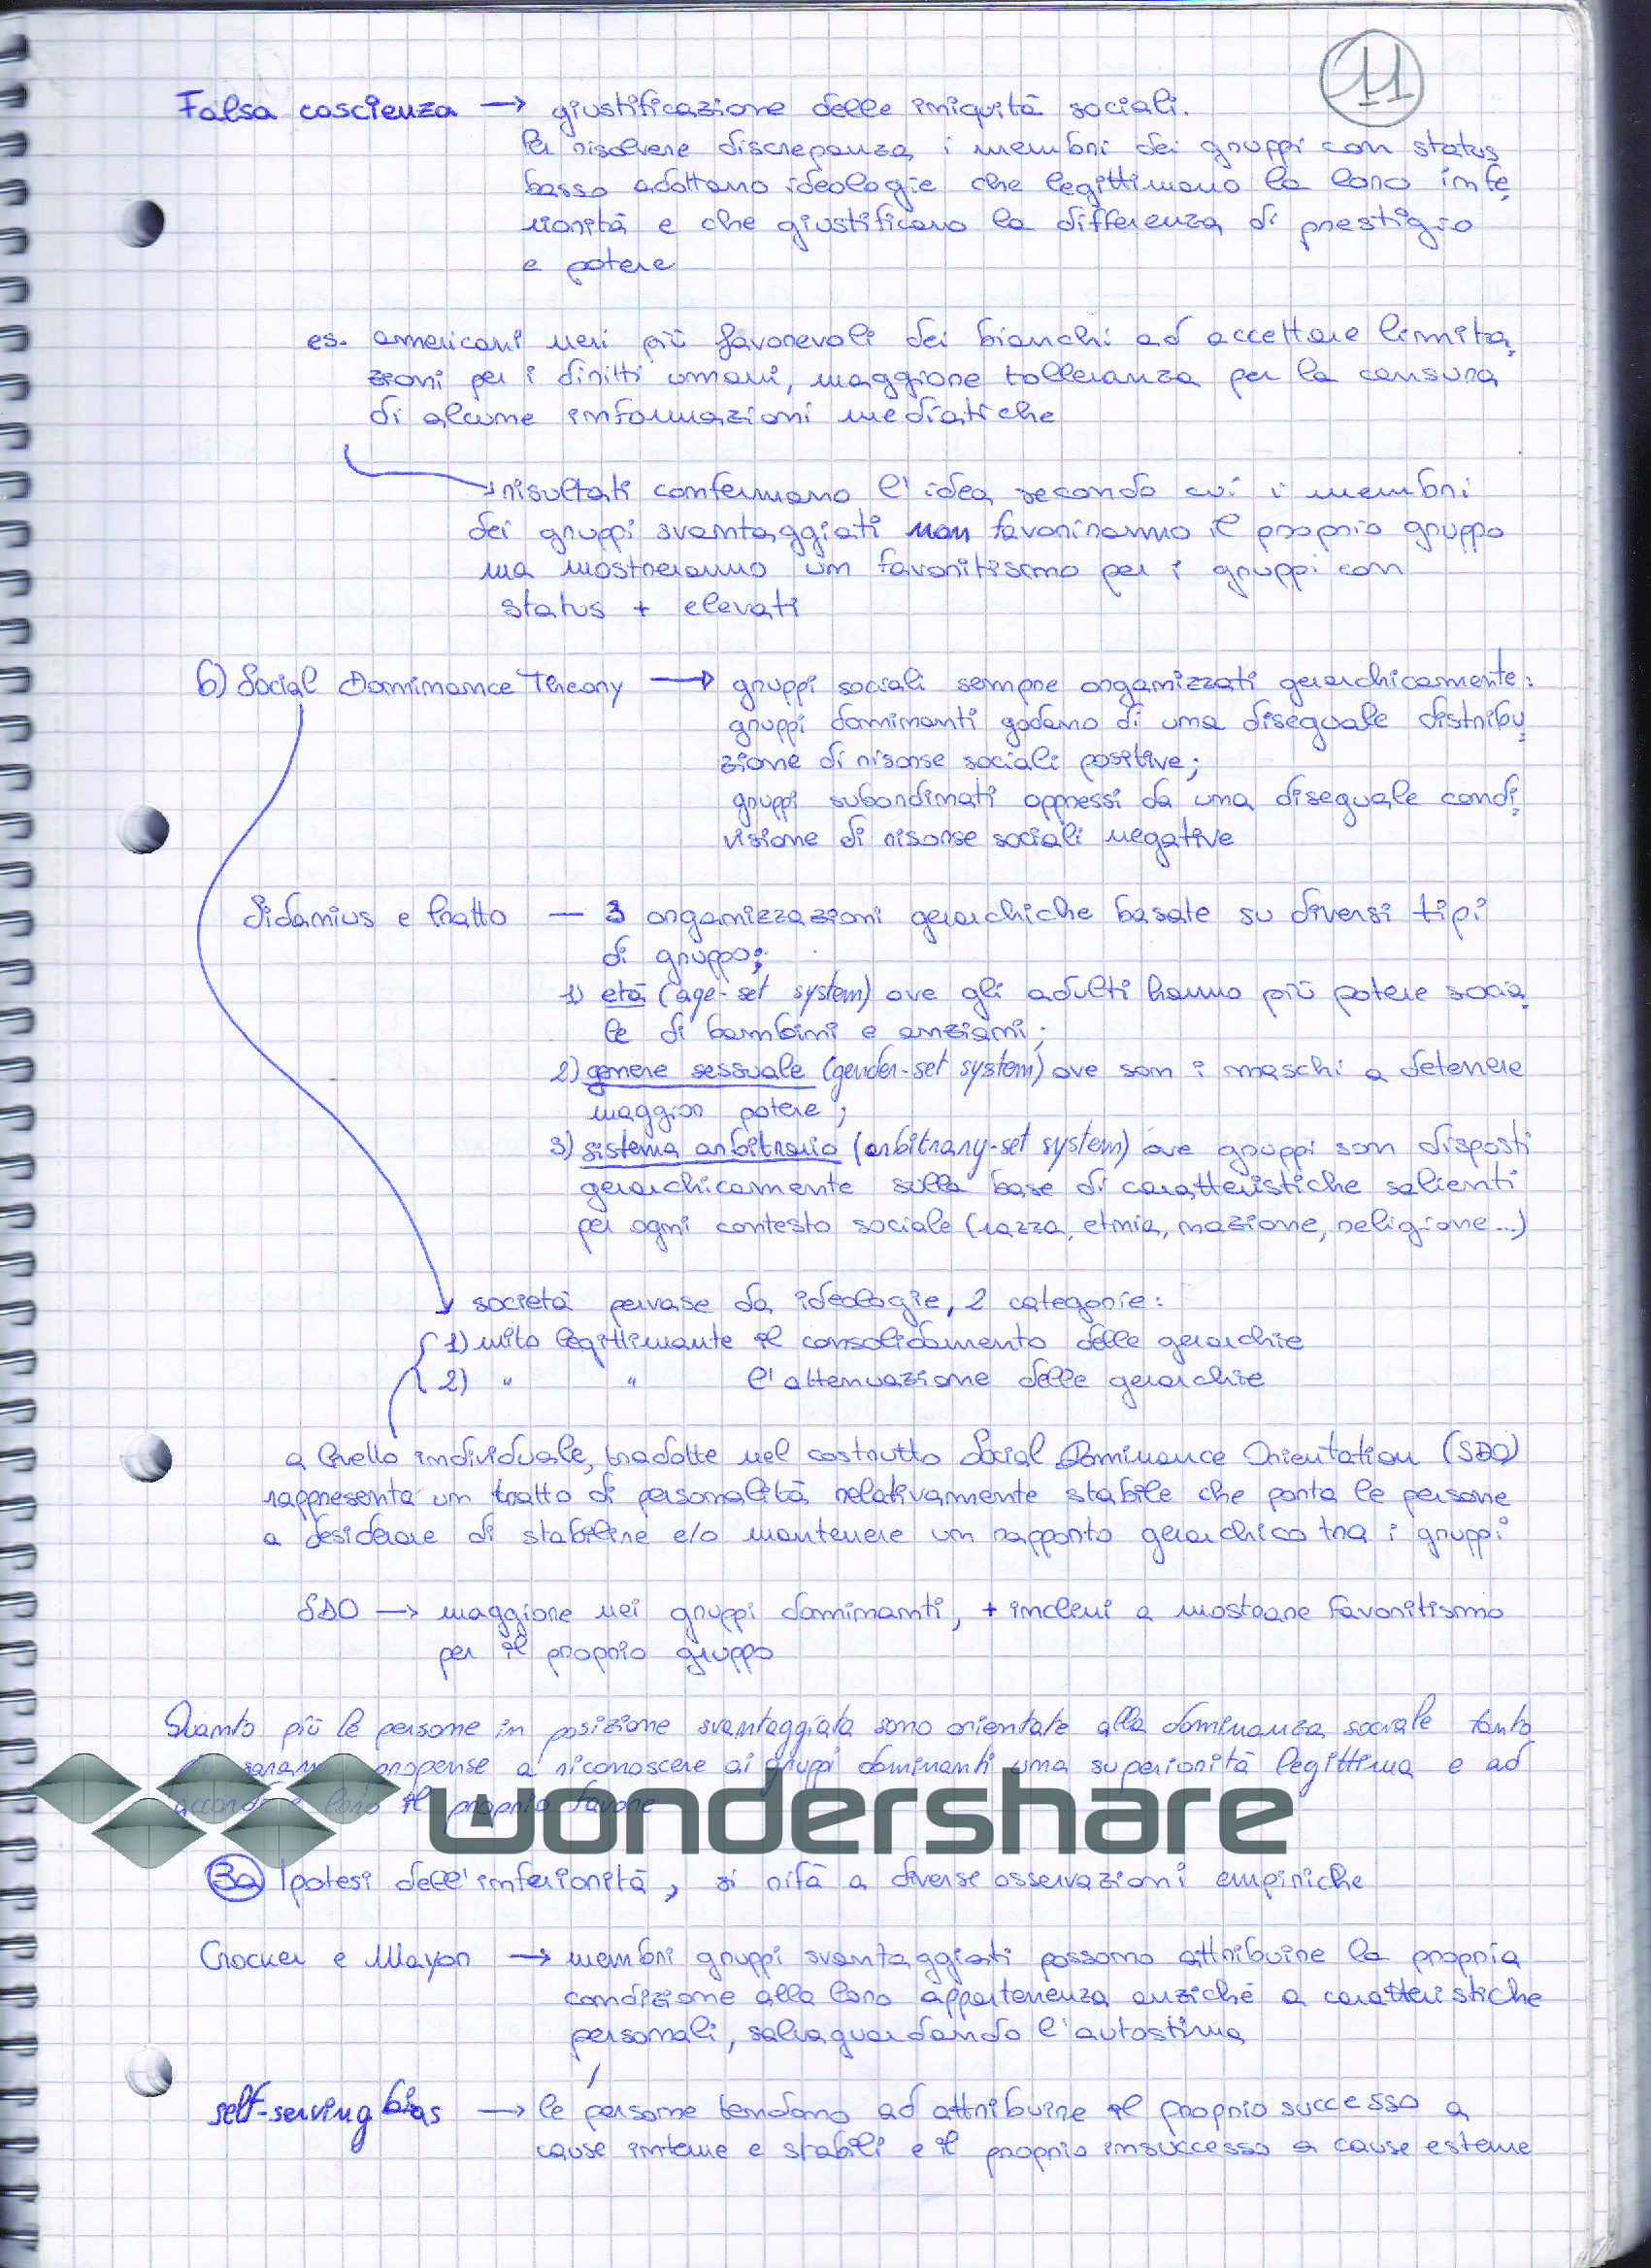 11
Falsa coscienza → giustificazione delle iniquità sociali.
Per risolvere discrepanza i membri dei gruppi con status
basso adottano ideologie che legittimano la loro infe
riorità e che giustificano la differenza di prestigio
e potere
es. americani neri più favorevoli dei bianchi ad accettare limita
zioni per i diritti umani, maggiore tolleranza per la censura
di alcune informazioni mediatiche
→ risultati confermano l'idea secondo cui i membri
dei gruppi svantaggiati non favoriranno il proprio gruppo
ma mostreranno un favoritismo per i gruppi con
status + elevati
6) Social Dominance Theory → gruppi sociali sempre organizzati gerarchicamente:
gruppi dominanti godono di una diseguale distribu
zione di risorse sociali positive;
gruppi subordinati oppressi da una diseguale condi
visione di risorse sociali negative
Sidanius e Pratto — 3 organizzazioni gerarchiche basate su diversi tipi
di gruppo:
1) età (age-set system) ove gli adulti hanno più potere socia
le di bambini e anziani;
2) genere sessuale (gender-set system) ove son i maschi a detenere
maggior potere;
3) sistema arbitrario (arbitrary-set system) ove gruppi son disposti
gerarchicamente sulla base di caratteristiche salienti
per ogni contesto sociale (razza, etnia, nazione, religione...)
società pervase da ideologie, 2 categorie:
1) mito legittimante il consolidamento delle gerarchie
2) " " l'attenuazione delle gerarchie
a livello individuale, tradotte nel costrutto Social Dominance Orientation (SDO)
rappresenta un tratto di personalità relativamente stabile che porta le persone
a desiderare di stabilire e/o mantenere un rapporto gerarchico tra i gruppi
SDO → maggiore nei gruppi dominanti, + inclini a mostrare favoritismo
per il proprio gruppo
Quanto più le persone in posizione svantaggiata sono orientate alla dominanza sociale tanto
saranno propense a riconoscere ai gruppi dominanti una superiorità legittima e ad
accordare loro il proprio favore
wondershare
3a Ipotesi dell'inferiorità, si rifà a diverse osservazioni empiriche
Crocker e Mayor → membri gruppi svantaggiati possono attribuire la propria
condizione alla loro appartenenza anziché a caratteristiche
personali, salvaguardando l'autostima
self-serving bias → le persone tendono ad attribuire il proprio successo a
cause interne e stabili e il proprio insuccesso a cause esterne